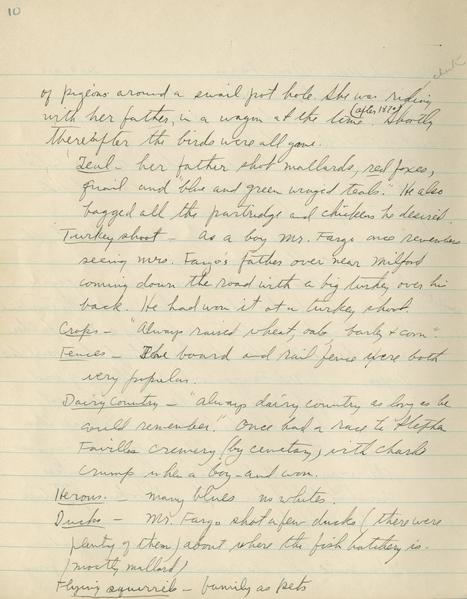 10
check
of pigeons around a small pot hole. She was riding
with her father, in a wagon at the time (after 1870). Shortly
thereafter the birds were all gone.
Teal - her father shot mallards, red foxes,
quail and "blue and green winged teals." He also
bagged all the partridge and chickens he desired.
Turkey shoot - As a boy Mr. Fargo once remembers
seeing Mrs. Fargo's father over near Milford
coming down the road with a big turkey over his
back. He had won it at a turkey shoot.
Crops - "Always raised wheat, oats, barley & corn".
Fences - The board and rail fence were both
very popular.
Dairy Country - "Always dairy country as long as he
could remember." Once had a race to
cremery (by cemetary) with Charle
Crump when a boy - and won.
Herons - many blues no whites.
Ducks - Mr. Fargo shot a few ducks (there were
plenty of them) about where the fish hatchery is.
(mostly mallard)
Flying squirrels - family as pets